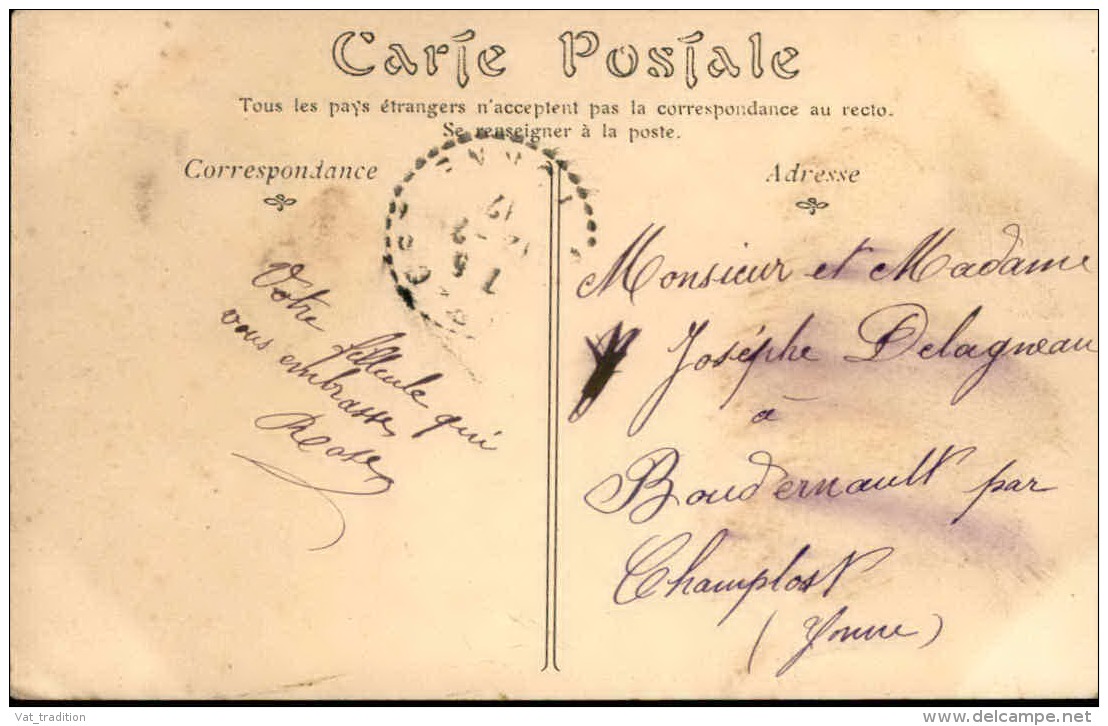 Carte Postale
Tous les pays étrangers n'acceptent pas la correspondance au recto.
Se renseigner à la poste.
Correspondance
Adresse
Votre filleule qui
vous embrasse
Rose
Monsieur et Madame
Joséphe Delagneau
à
Boudernault par
Champlost
(Yonne)
Vat_tradition
www.delcampe.net